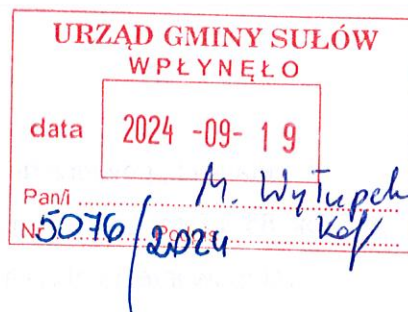 URZĄD GMINY SUŁÓW
WPŁYNĘŁO
data 2024 -09- 19
Pan/i M. Wyłupek
Nr 5076/2024 Podpis